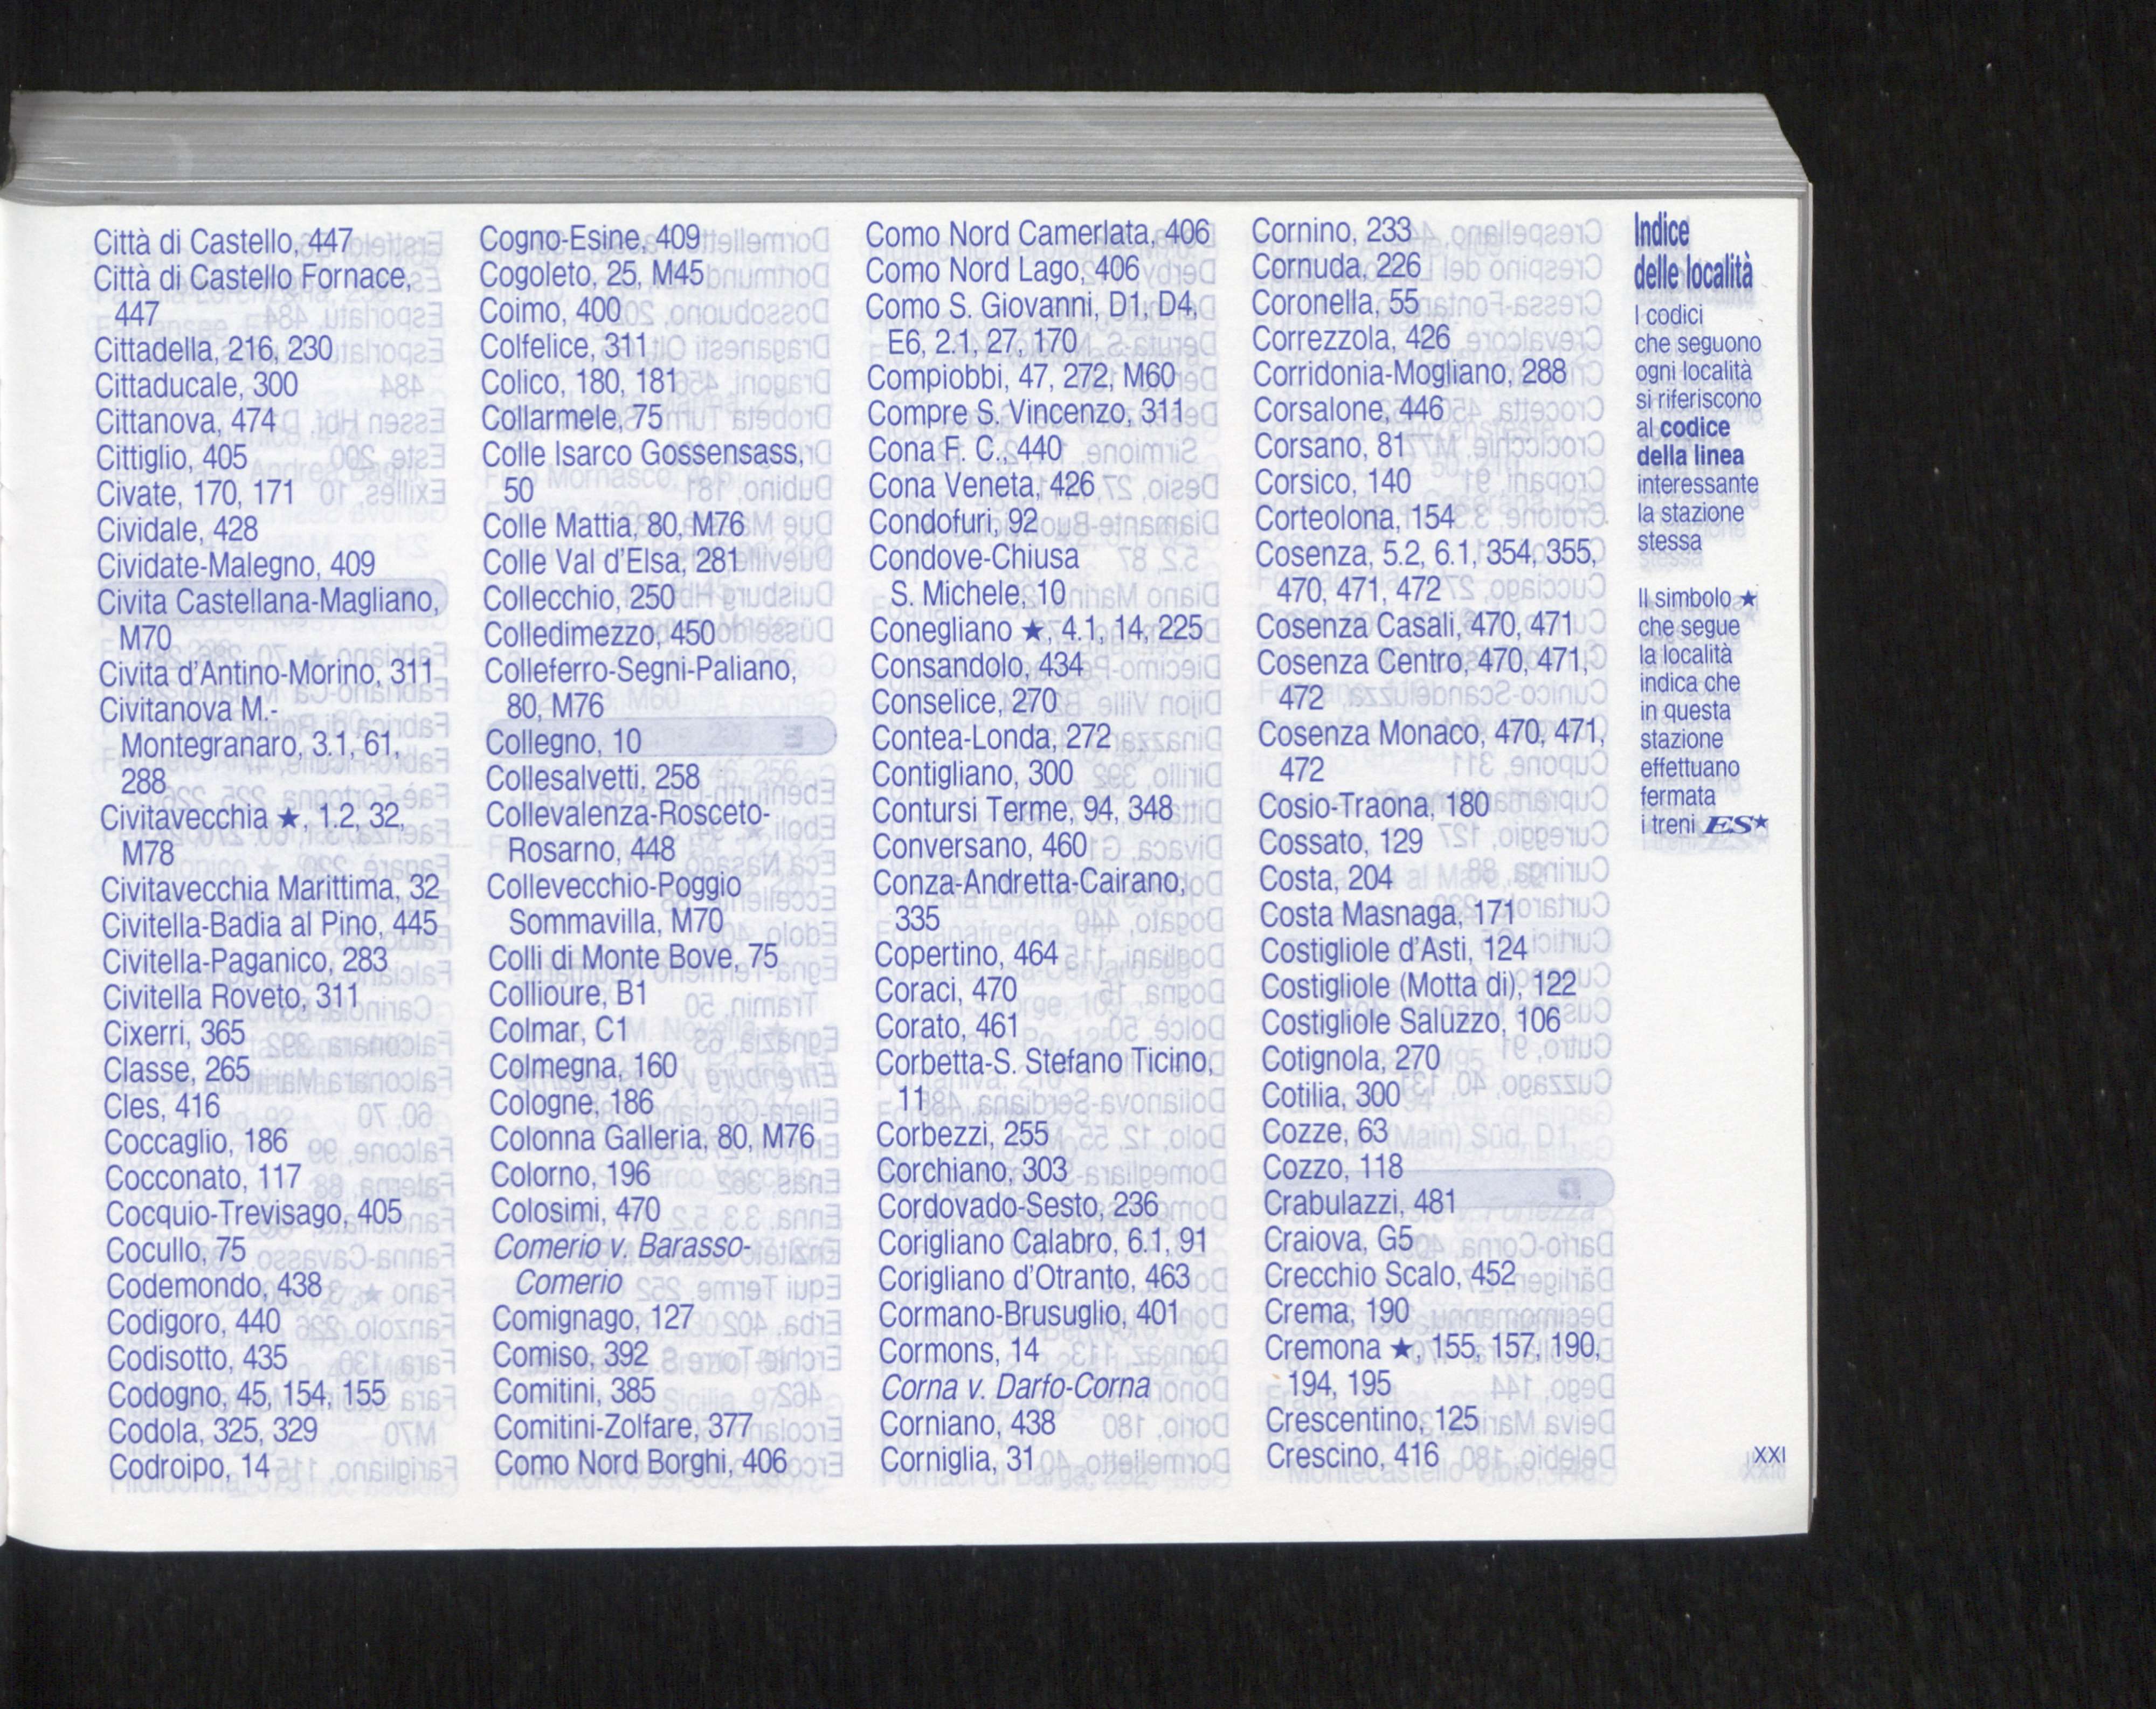 Città di Castello, 447
Città di Castello Fornace,
447
Cittadella, 216, 230
Cittaducale, 300
Cittanova, 474
Cittiglio, 405
Civate, 170, 171
Cividale, 428
Cividate-Malegno, 409
Civita Castellana-Magliano,
M70
Civita d'Antino-Morino, 311
Civitanova M.-
Montegranaro, 3.1, 61,
288
Civitavecchia ★, 1.2, 32,
M78
Civitavecchia Marittima, 32
Civitella-Badia al Pino, 445
Civitella-Paganico, 283
Civitella Roveto, 311
Cixerri, 365
Classe, 265
Cles, 416
Coccaglio, 186
Cocconato, 117
Cocquio-Trevisago, 405
Cocullo, 75
Codemondo, 438
Codigoro, 440
Codisotto, 435
Codogno, 45, 154, 155
Codola, 325, 329
Codroipo, 14
Cogno-Esine, 409
Cogoleto, 25, M45
Coimo, 400
Colfelice, 311
Colico, 180, 181
Collarmele, 75
Colle Isarco Gossensass,
50
Colle Mattia, 80, M76
Colle Val d'Elsa, 281
Collecchio, 250
Colledimezzo, 450
Colleferro-Segni-Paliano,
80, M76
Collegno, 10
Collesalvetti, 258
Collevalenza-Rosceto-
Rosarno, 448
Collevecchio-Poggio
Sommavilla, M70
Colli di Monte Bove, 75
Collioure, B1
Colmar, C1
Colmegna, 160
Cologne, 186
Colonna Galleria, 80, M76
Colorno, 196
Colosimi, 470
Comerio v. Barasso-
Comerio
Comignago, 127
Comiso, 392
Comitini, 385
Comitini-Zolfare, 377
Como Nord Borghi, 406
Como Nord Camerlata, 406
Como Nord Lago, 406
Como S. Giovanni, D1, D4,
E6, 2.1, 27, 170
Compiobbi, 47, 272, M60
Compre S. Vincenzo, 311
Cona F. C., 440
Cona Veneta, 426
Condofuri, 92
Condove-Chiusa
S. Michele, 10
Conegliano ★, 4.1, 14, 225
Consandolo, 434
Conselice, 270
Contea-Londa, 272
Contigliano, 300
Contursi Terme, 94, 348
Conversano, 460
Conza-Andretta-Cairano,
335
Copertino, 464
Coraci, 470
Corato, 461
Corbetta-S. Stefano Ticino,
11
Corbezzi, 255
Corchiano, 303
Cordovado-Sesto, 236
Corigliano Calabro, 6.1, 91
Corigliano d'Otranto, 463
Cormano-Brusuglio, 401
Cormons, 14
Corna v. Darfo-Corna
Corniano, 438
Corniglia, 31
Cornino, 233
Cornuda, 226
Coronella, 55
Correzzola, 426
Corridonia-Mogliano, 288
Corsalone, 446
Corsano, 81
Corsico, 140
Corteolona, 154
Cosenza, 5.2, 6.1, 354, 355,
470, 471, 472
Cosenza Casali, 470, 471
Cosenza Centro, 470, 471,
472
Cosenza Monaco, 470, 471,
472
Cosio-Traona, 180
Cossato, 129
Costa, 204
Costa Masnaga, 171
Costigliole d'Asti, 124
Costigliole (Motta di), 122
Costigliole Saluzzo, 106
Cotignola, 270
Cotilia, 300
Cozze, 63
Cozzo, 118
Crabulazzi, 481
Craiova, G5
Crecchio Scalo, 452
Crema, 190
Cremona ★, 155, 157, 190,
194, 195
Crescentino, 125
Crescino, 416
Indice
delle località
I codici
che seguono
ogni località
si riferiscono
al codice
della linea
interessante
la stazione
stessa
Il simbolo ★
che segue
la località
indica che
in questa
stazione
effettuano
fermata
i treni ES★
XXI